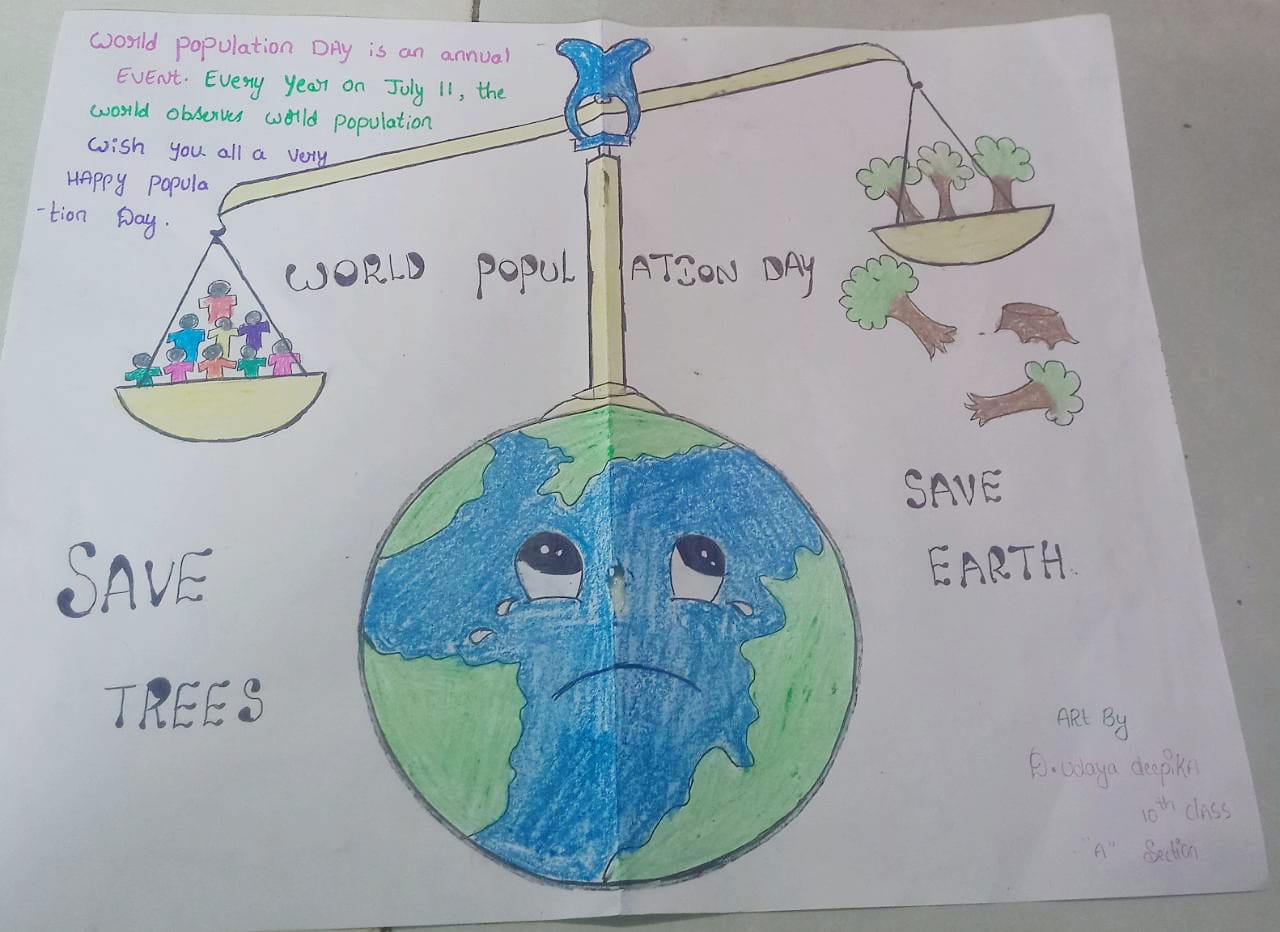 World Population DAy is an annual
EVENt. Every Year on July 11, the
world observes world population
wish you all a very
HAPPy Popula
-tion Day.
WORLD POPULATION DAy
SAVE
EARTH.
SAVE
TREES
ARt By
D. udaya deepika
10th CLASS
"A" Section